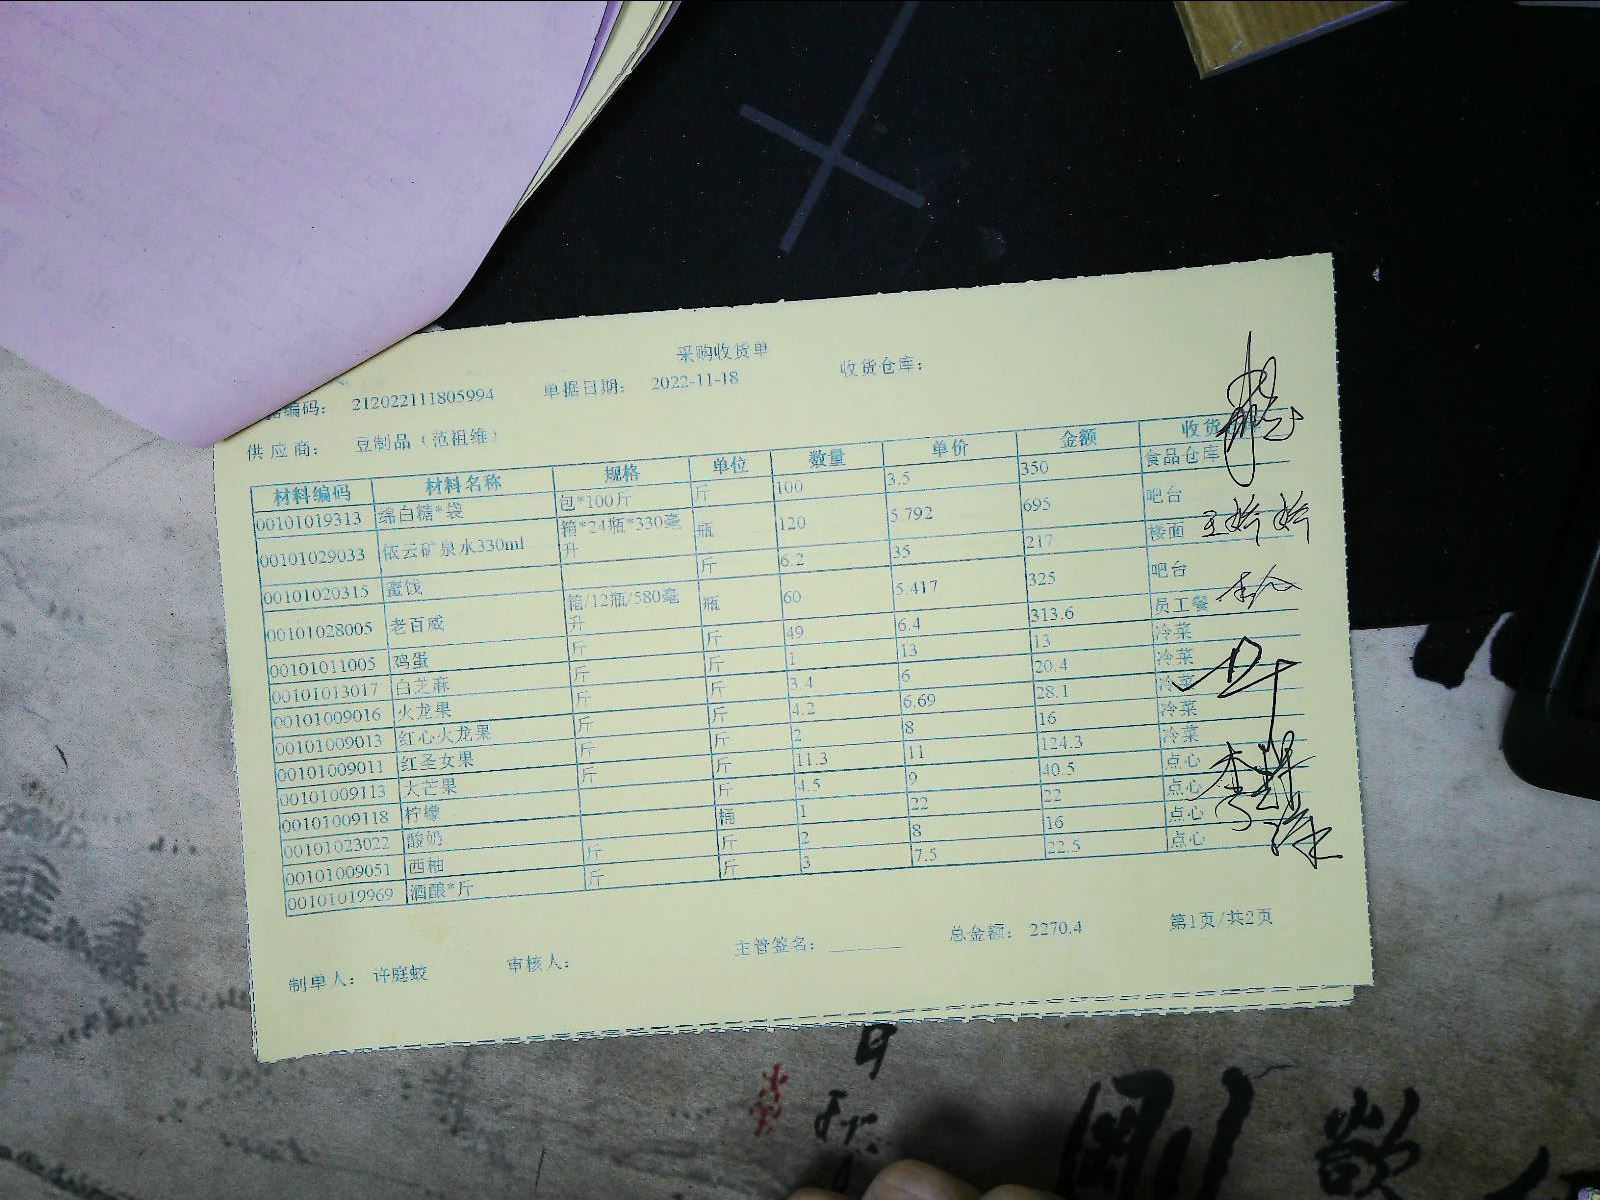 采购收货单
编码： 212022111805994 单据日期： 2022-11-18 收货仓库：
供应商： 豆制品（范祖维）
材料编码 材料名称 规格 单位 数量 单价 金额 收货
00101019313 绵白糖*袋 包*100斤 斤 100 3.5 350 食品仓库
00101029033 依云矿泉水330ml 箱*24瓶*330毫升 瓶 120 5.792 695 吧台
00101020315 蜜饯 斤 6.2 35 217 楼面
00101028005 老百威 箱/12瓶/580毫升 瓶 60 5.417 325 吧台
00101011005 鸡蛋 斤 斤 49 6.4 313.6 员工餐
00101013017 白芝麻 斤 斤 1 13 13 冷菜
00101009016 火龙果 斤 斤 3.4 6 20.4 冷菜
00101009013 红心火龙果 斤 斤 4.2 6.69 28.1 冷菜
00101009011 红圣女果 斤 斤 2 8 16 冷菜
00101009113 大芒果 斤 斤 11.3 11 124.3 冷菜
00101009118 柠檬 斤 4.5 9 40.5 点心
00101023022 酸奶 桶 1 22 22 点心
00101009051 西柚 斤 斤 2 8 16 点心
00101019969 酒酿*斤 斤 斤 3 7.5 22.5 点心
主管签名： 总金额： 2270.4 第1页/共2页
制单人： 许庭蛟 审核人：